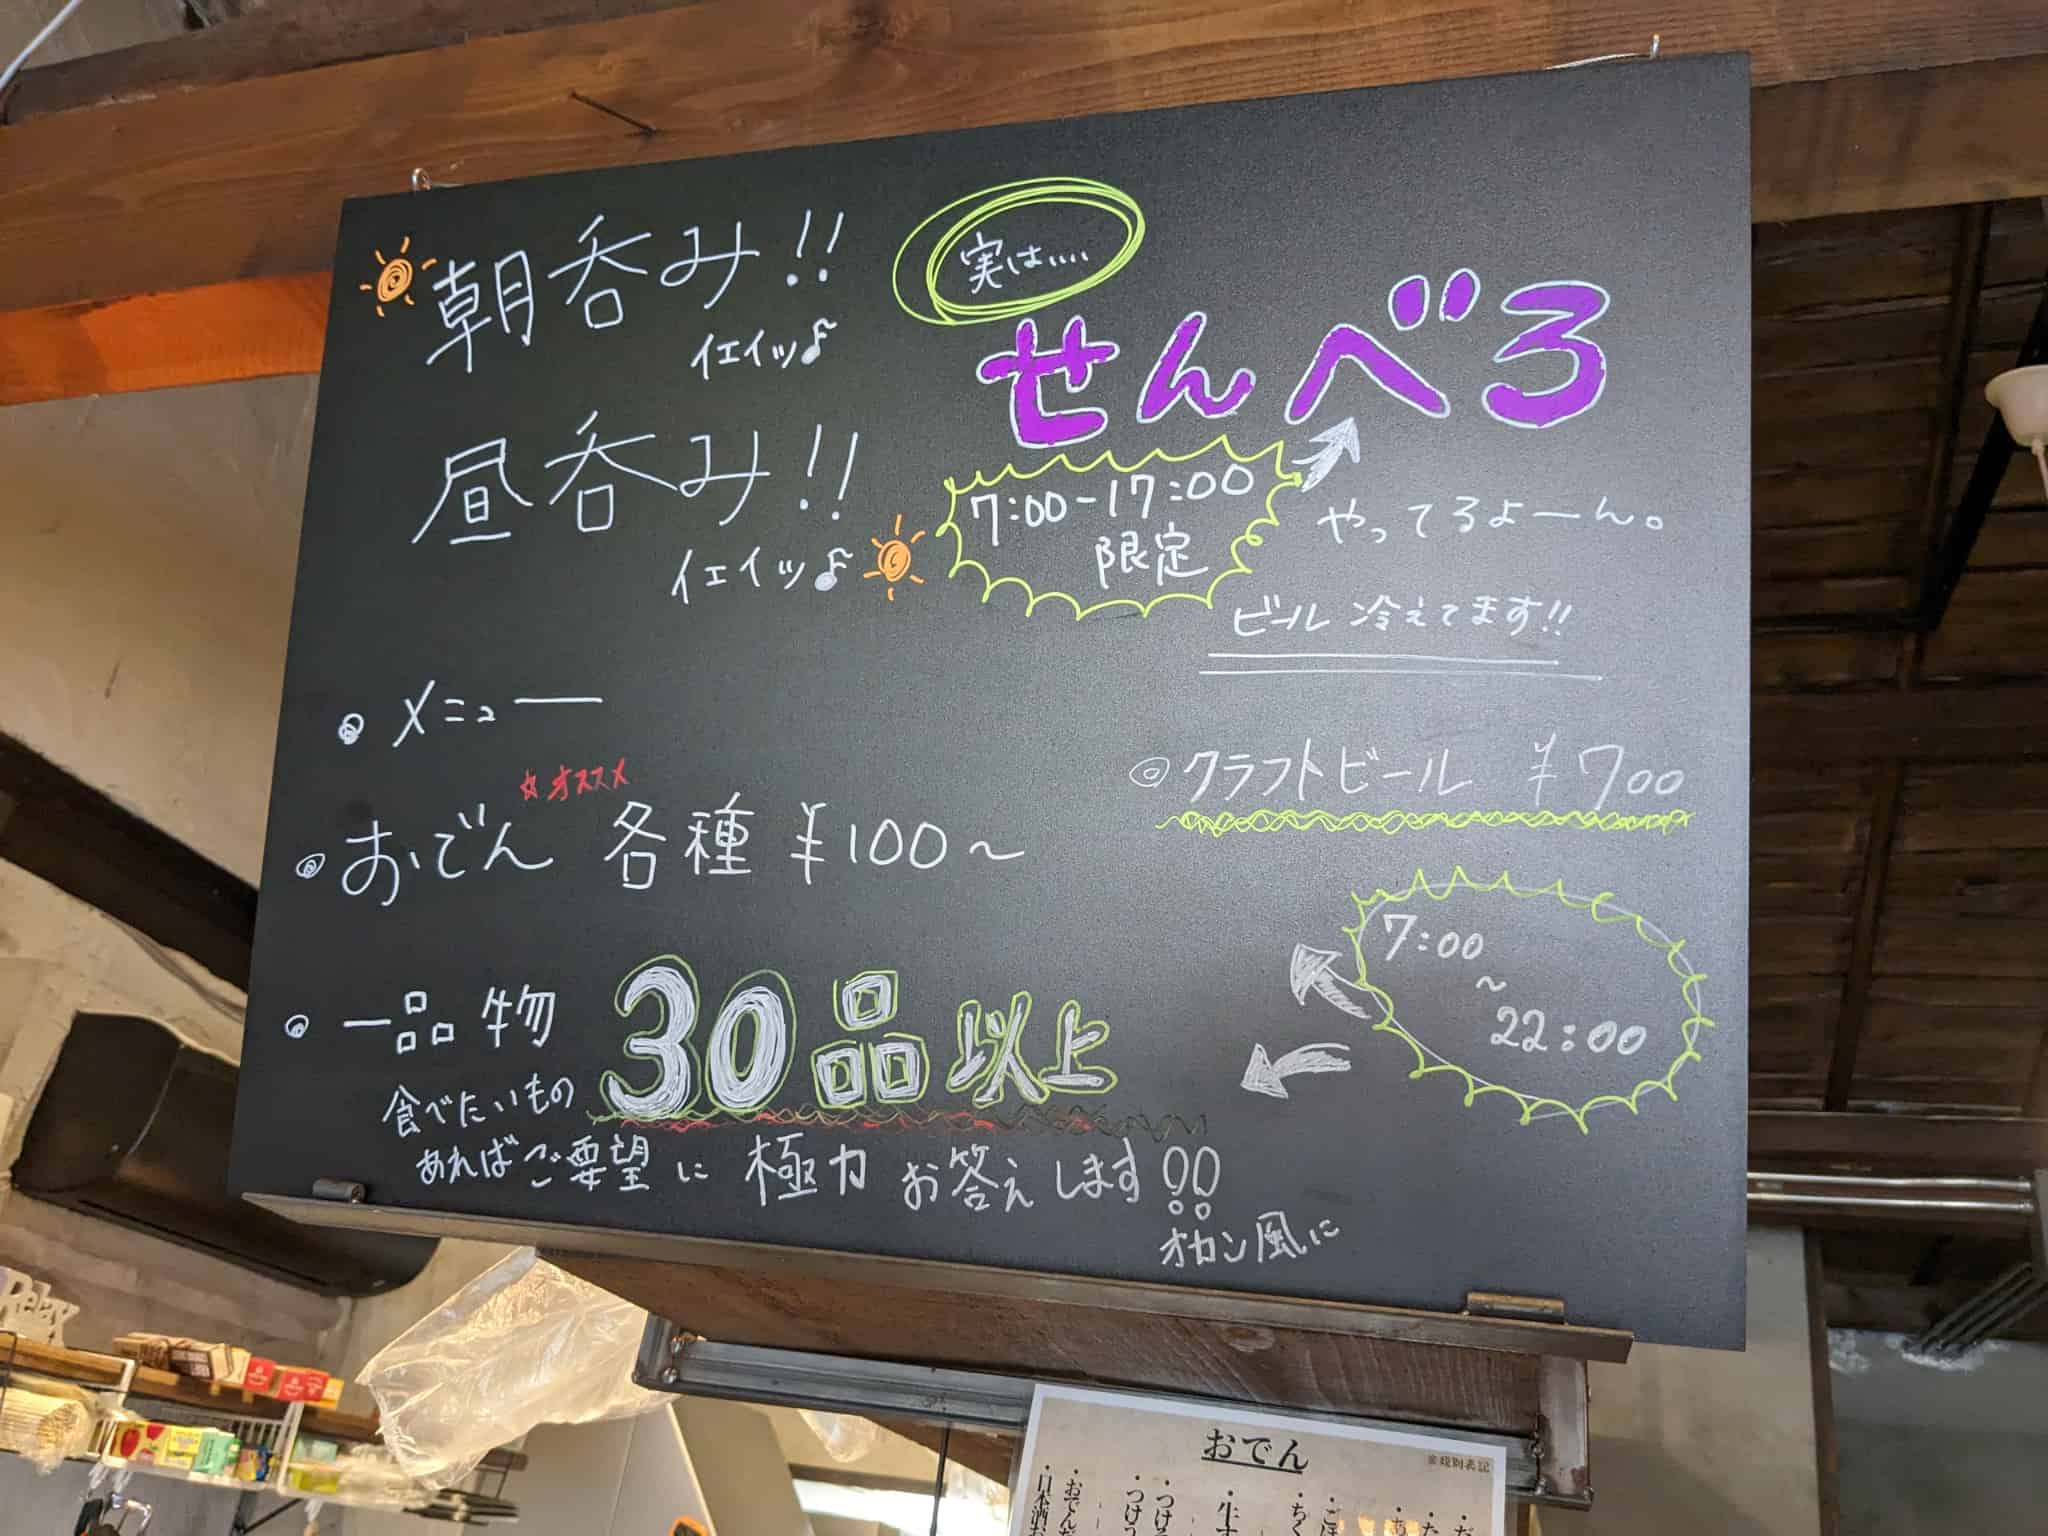 朝呑み!!
イエイッ♪
昼呑み!!
イエイッ♪
実は....
せんべろ
7:00-17:00
限定
やってろよーん。
ビール 冷えてます!!
・メニュー
☆オススメ
◎おでん 各種 ¥100〜
◎クラフトビール ¥700
7:00
〜
22:00
・一品物 30品以上
食べたいもの
あればご要望に極力お答えします!!
オカン風に
Relax
おでん